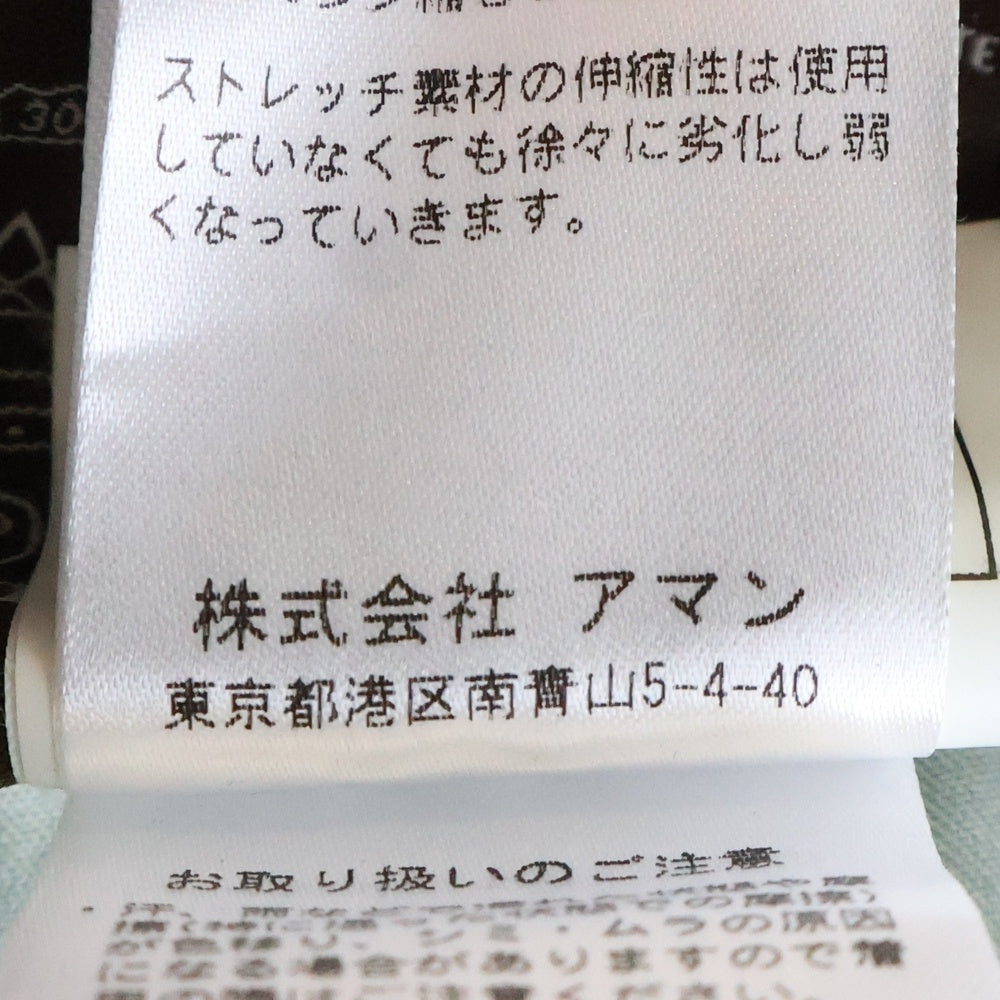 ストレッチ素材の伸縮性は使用
していなくても徐々に劣化し弱
くなっていきます。
株式会社 アマン
東京都港区南青山5-4-40
お取り扱いのご注意
が色移り、シミ・ムラの原因
になる場合がありますので着
30